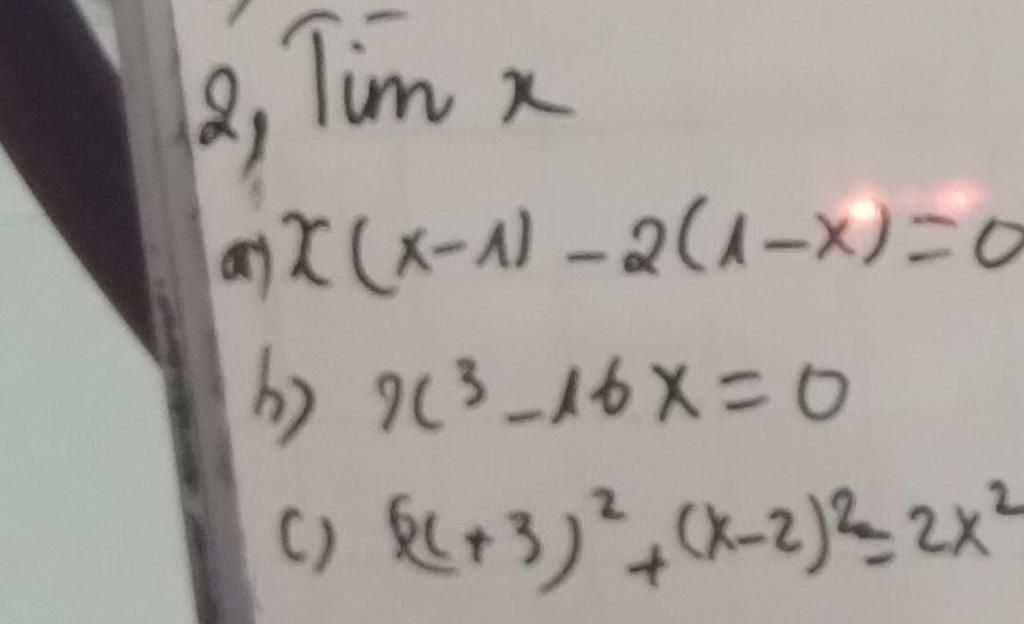 2, Tìm x
a) x(x-1) - 2(1-x) = 0
b) x³ - 16x = 0
c) (x+3)² + (x-2)² = 2x²